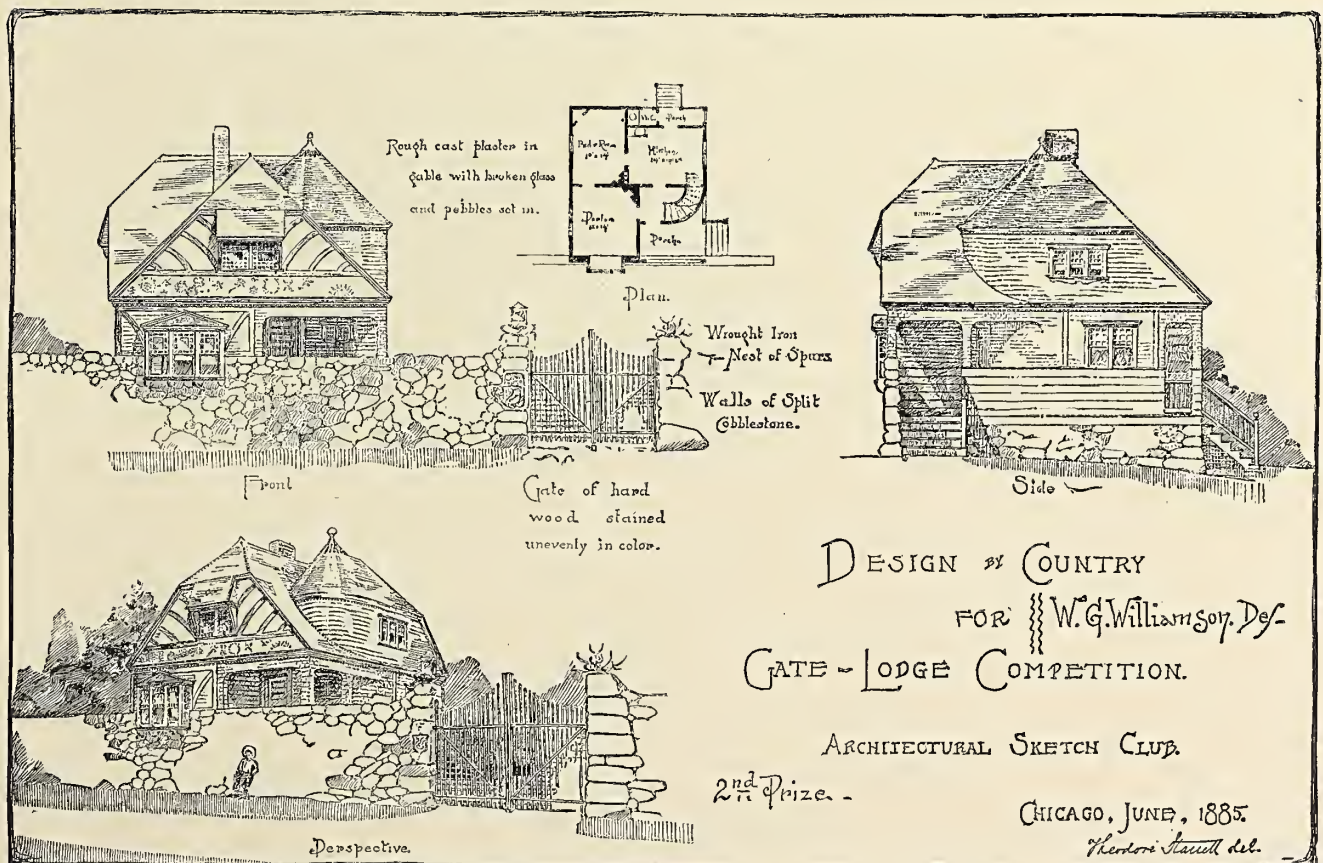 Rough cast plaster in
gable with broken glass
and pebbles set in.
W.C. Porch
Bed-Room
Kitchen
Parlor
Porch
Plan.
Wrought Iron
Nest of Spurs
Walls of Split
Cobblestone.
Front
Gate of hard
wood stained
unevenly in color.
Side
Perspective.
DESIGN BY COUNTRY
FOR W. G. Williamson. Des-
GATE-LODGE COMPETITION.
ARCHITECTURAL SKETCH CLUB.
2nd Prize.-
CHICAGO, JUNE, 1885.
Theodore Starrett del.